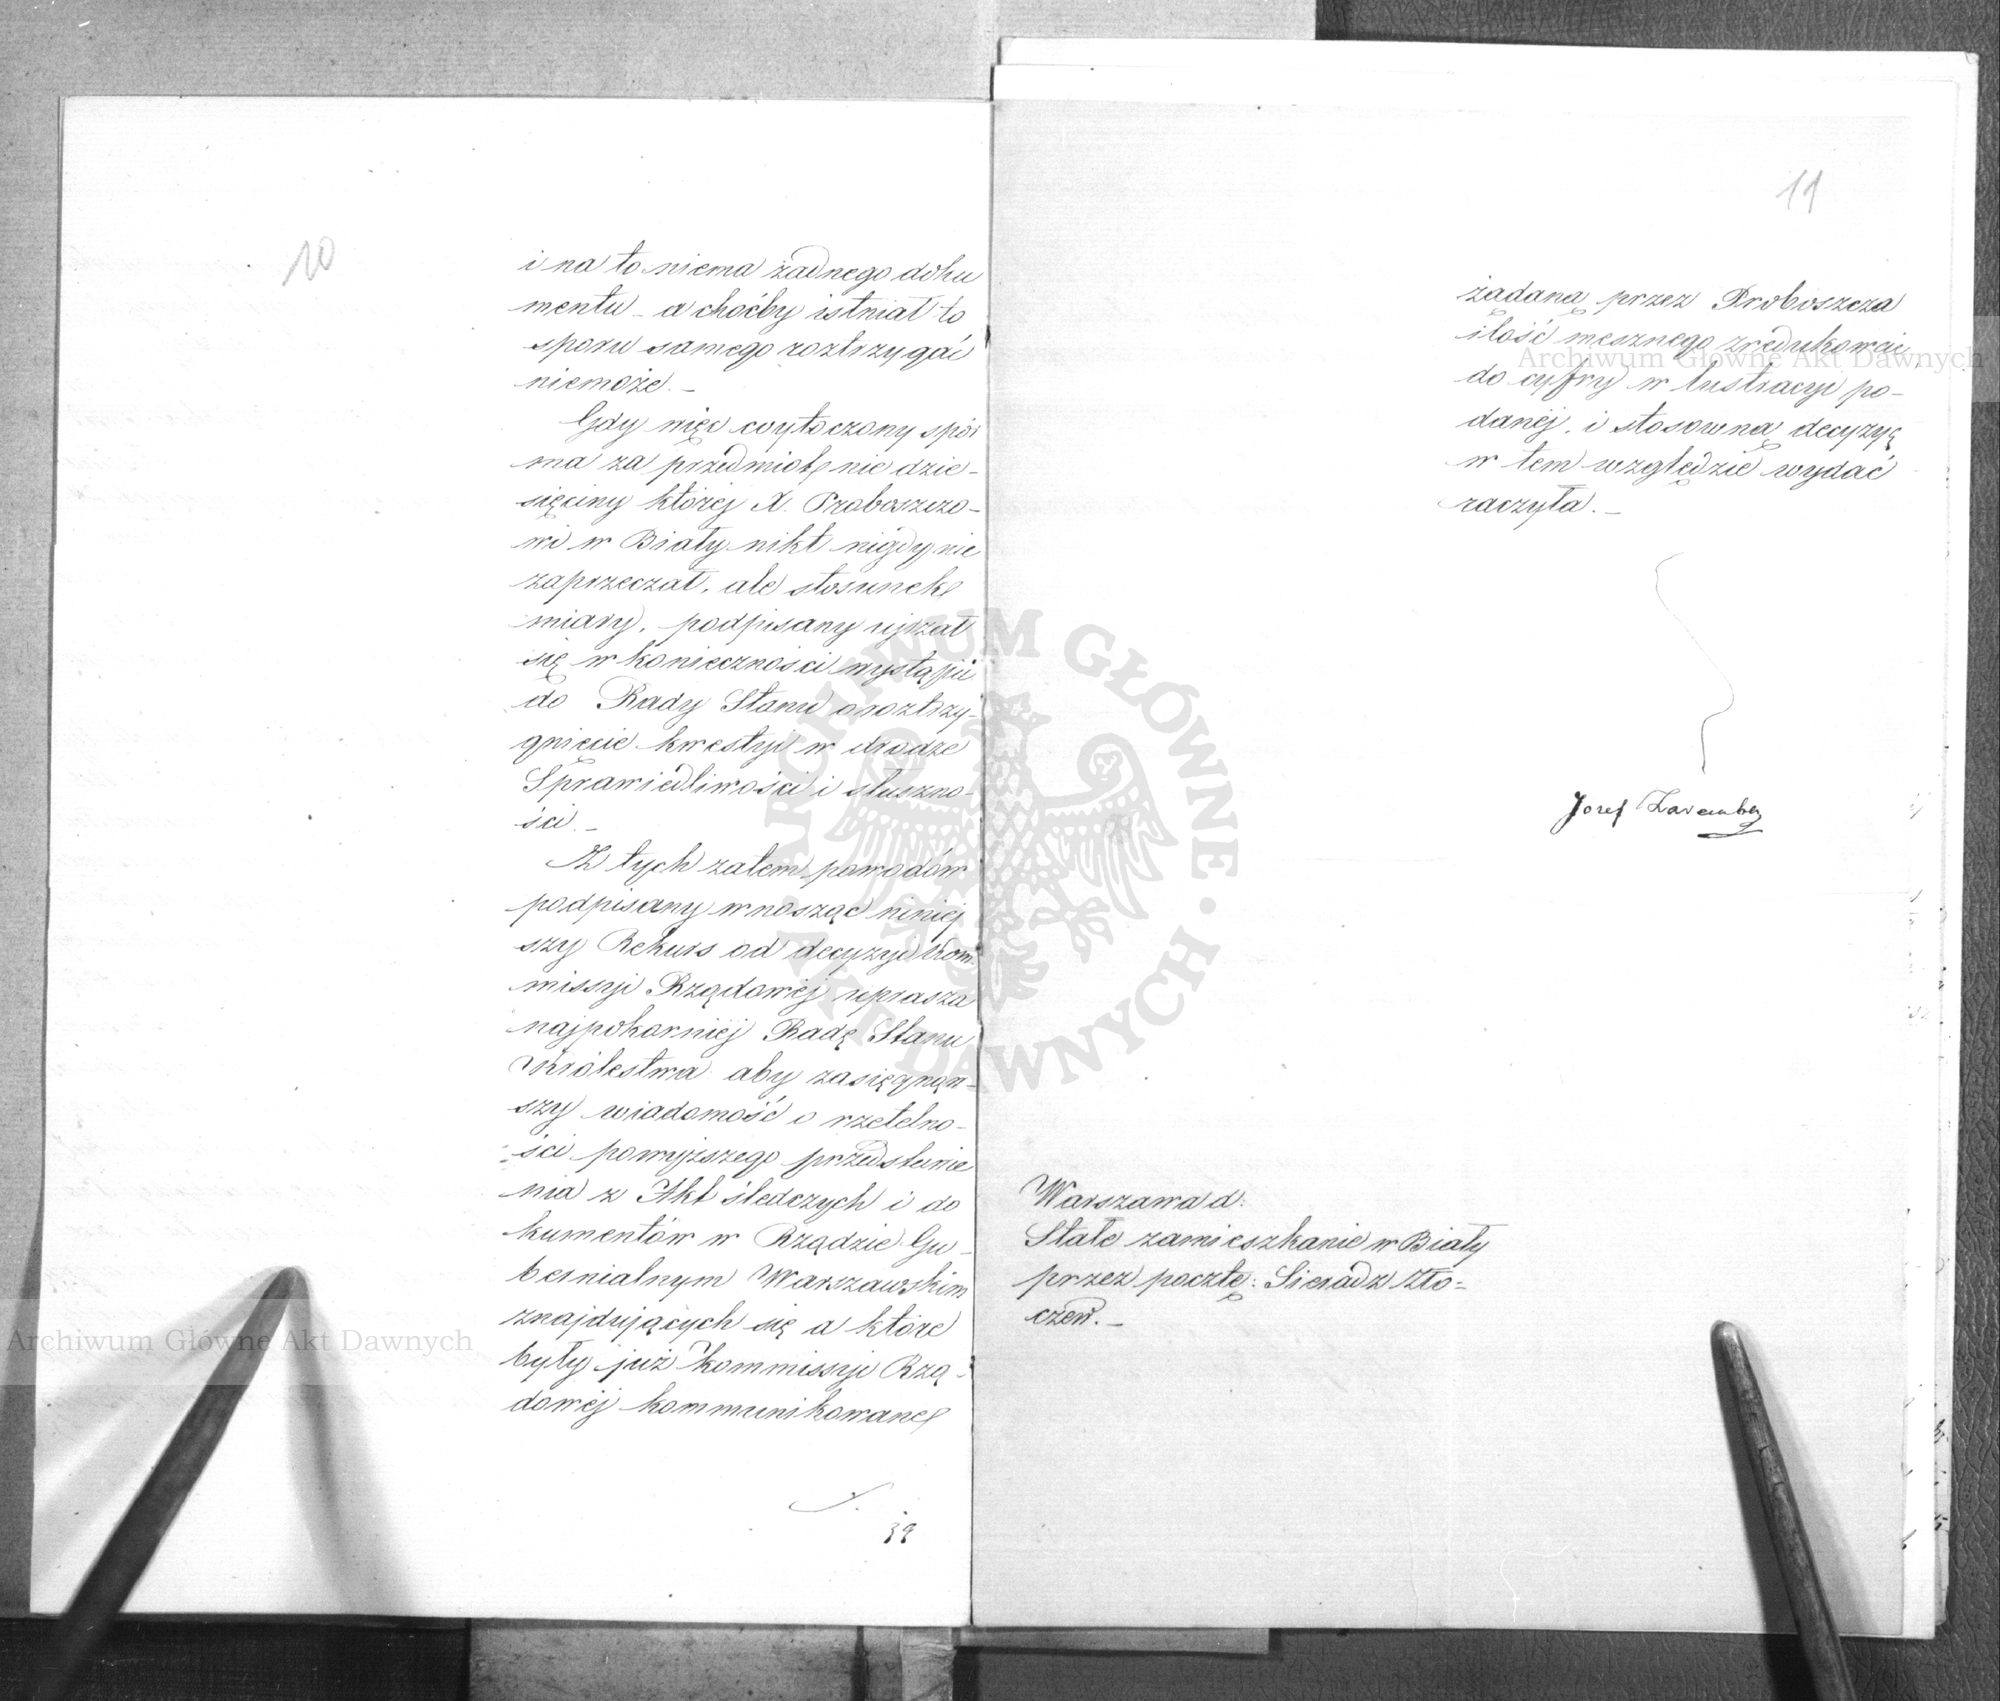 10
i na to niema żadnego doku
mentu – a choćby istniał to
sporu samego roztrzygać
niemoże. –
Gdy więc wytoczony spór
ma za przedmiot nie dzie-
sięciny której X. Proboszczo-
wi w Biały nikt nigdy nie
zaprzeczał, ale stosunek
miary, podpisany ujrzał
się w konieczności wystąpić
do Rady Stanu o roztrzy-
gnięcie kwestyi w drodze
Sprawiedliwości i słuszno-
ści. –
Z tych zatem powodów
podpisany wnosząc niniej
szy Rekurs od decyzyi Kom-
missyi Rządowéj uprasza
najpokorniéj Radę Stanu
Królestwa aby zasięgnąw-
szy wiadomość o rzetelno-
ści powyższego przedstawie
nia z Akt śledczych i do
kumentów w Rządzie Gu-
bernialnym Warszawskim
znajdujących się a które
były już Kommissyi Rzą-
dowéj kommunikowane
39
11
żądaną przez Proboszcza
ilość mesznego zredukować
do cyfry w lustracyi po-
danéj, i stosowną decyzyę
w tem względzie wydać
raczyła. –
Józef Zaremba
Warszawa d:
Stałe zamieszkanie w Biały
przez pocztę: Sieradz Zło-
czew. –
Archiwum Główne Akt Dawnych
Archiwum Główne Akt Dawnych
ARCHIWUM GŁÓWNE AKT DAWNYCH